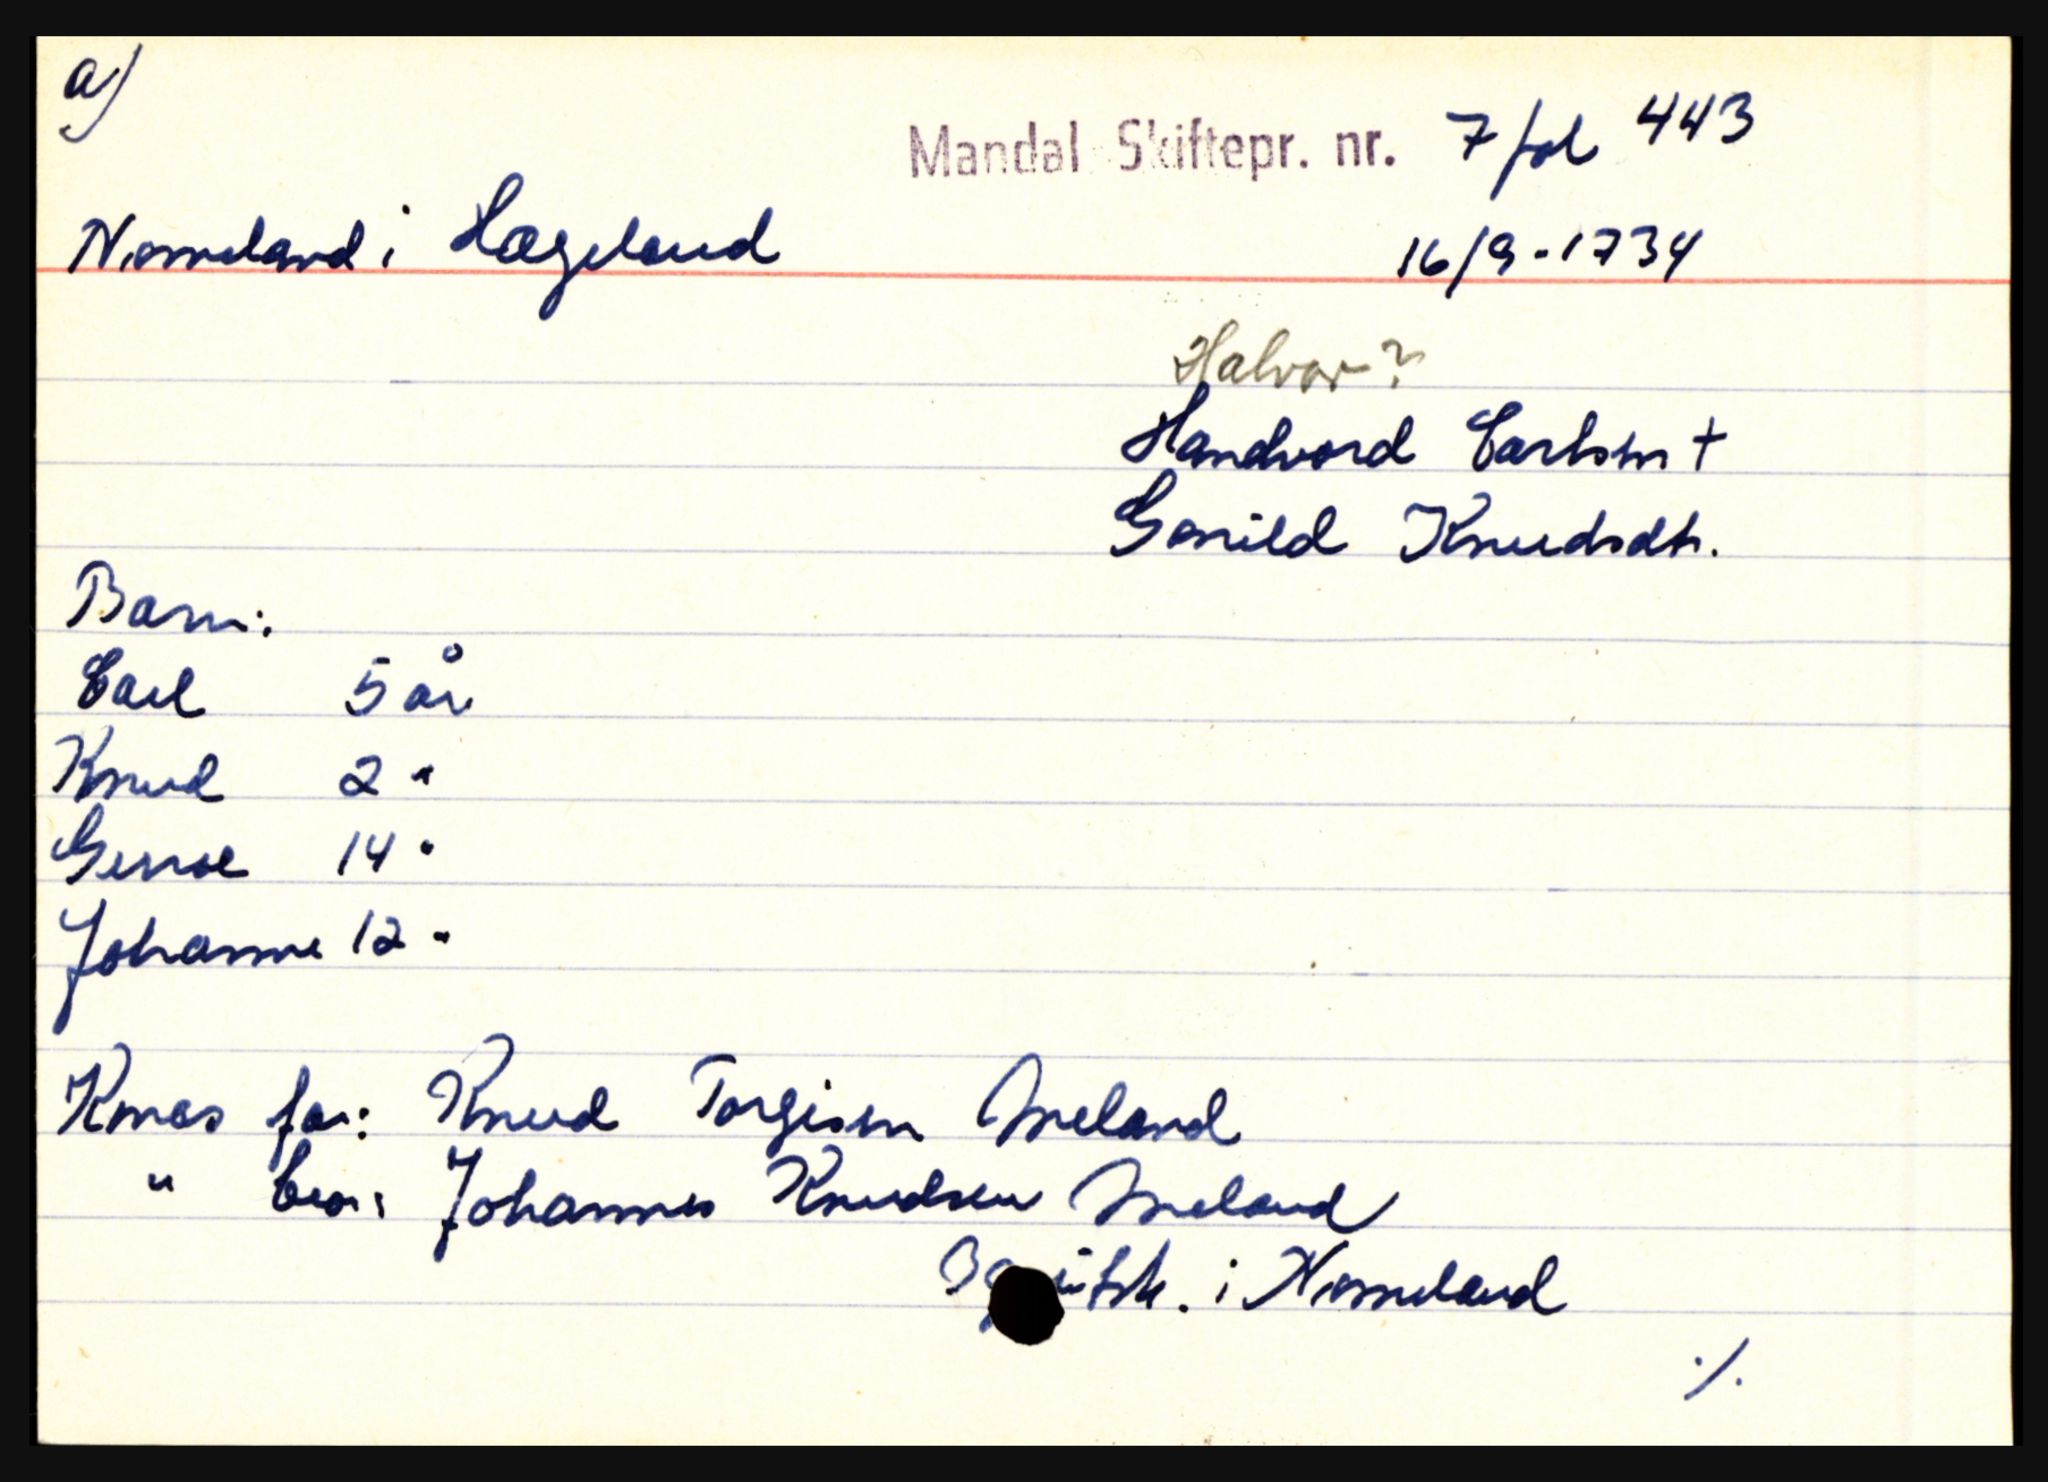 a)
Mandal Skiftepr. nr. 7 fol 443
Nomeland i Hægeland 16/9-1734
Halvor?
Handvord Carlsen +
Gonild Knudsdtr.
Barn:
Carl 5 år
Knud 2 "
Gunvel 14 "
Johanne 12 "
Konas far: Knud Torgisen Meland
" bror: Johannes Knudsen Meland
i Nomeland
./.